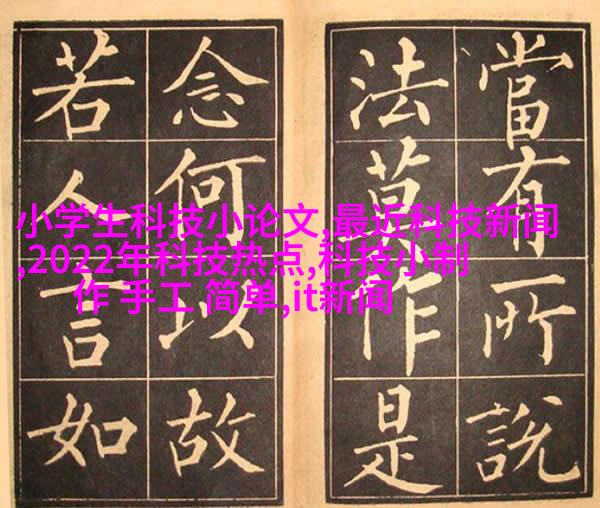 當有所說
法莫作是
念何以故
若人言如
小学生科技小论文,最近科技新闻
,2022年科技热点,科技小制
作 手工 简单,it新闻